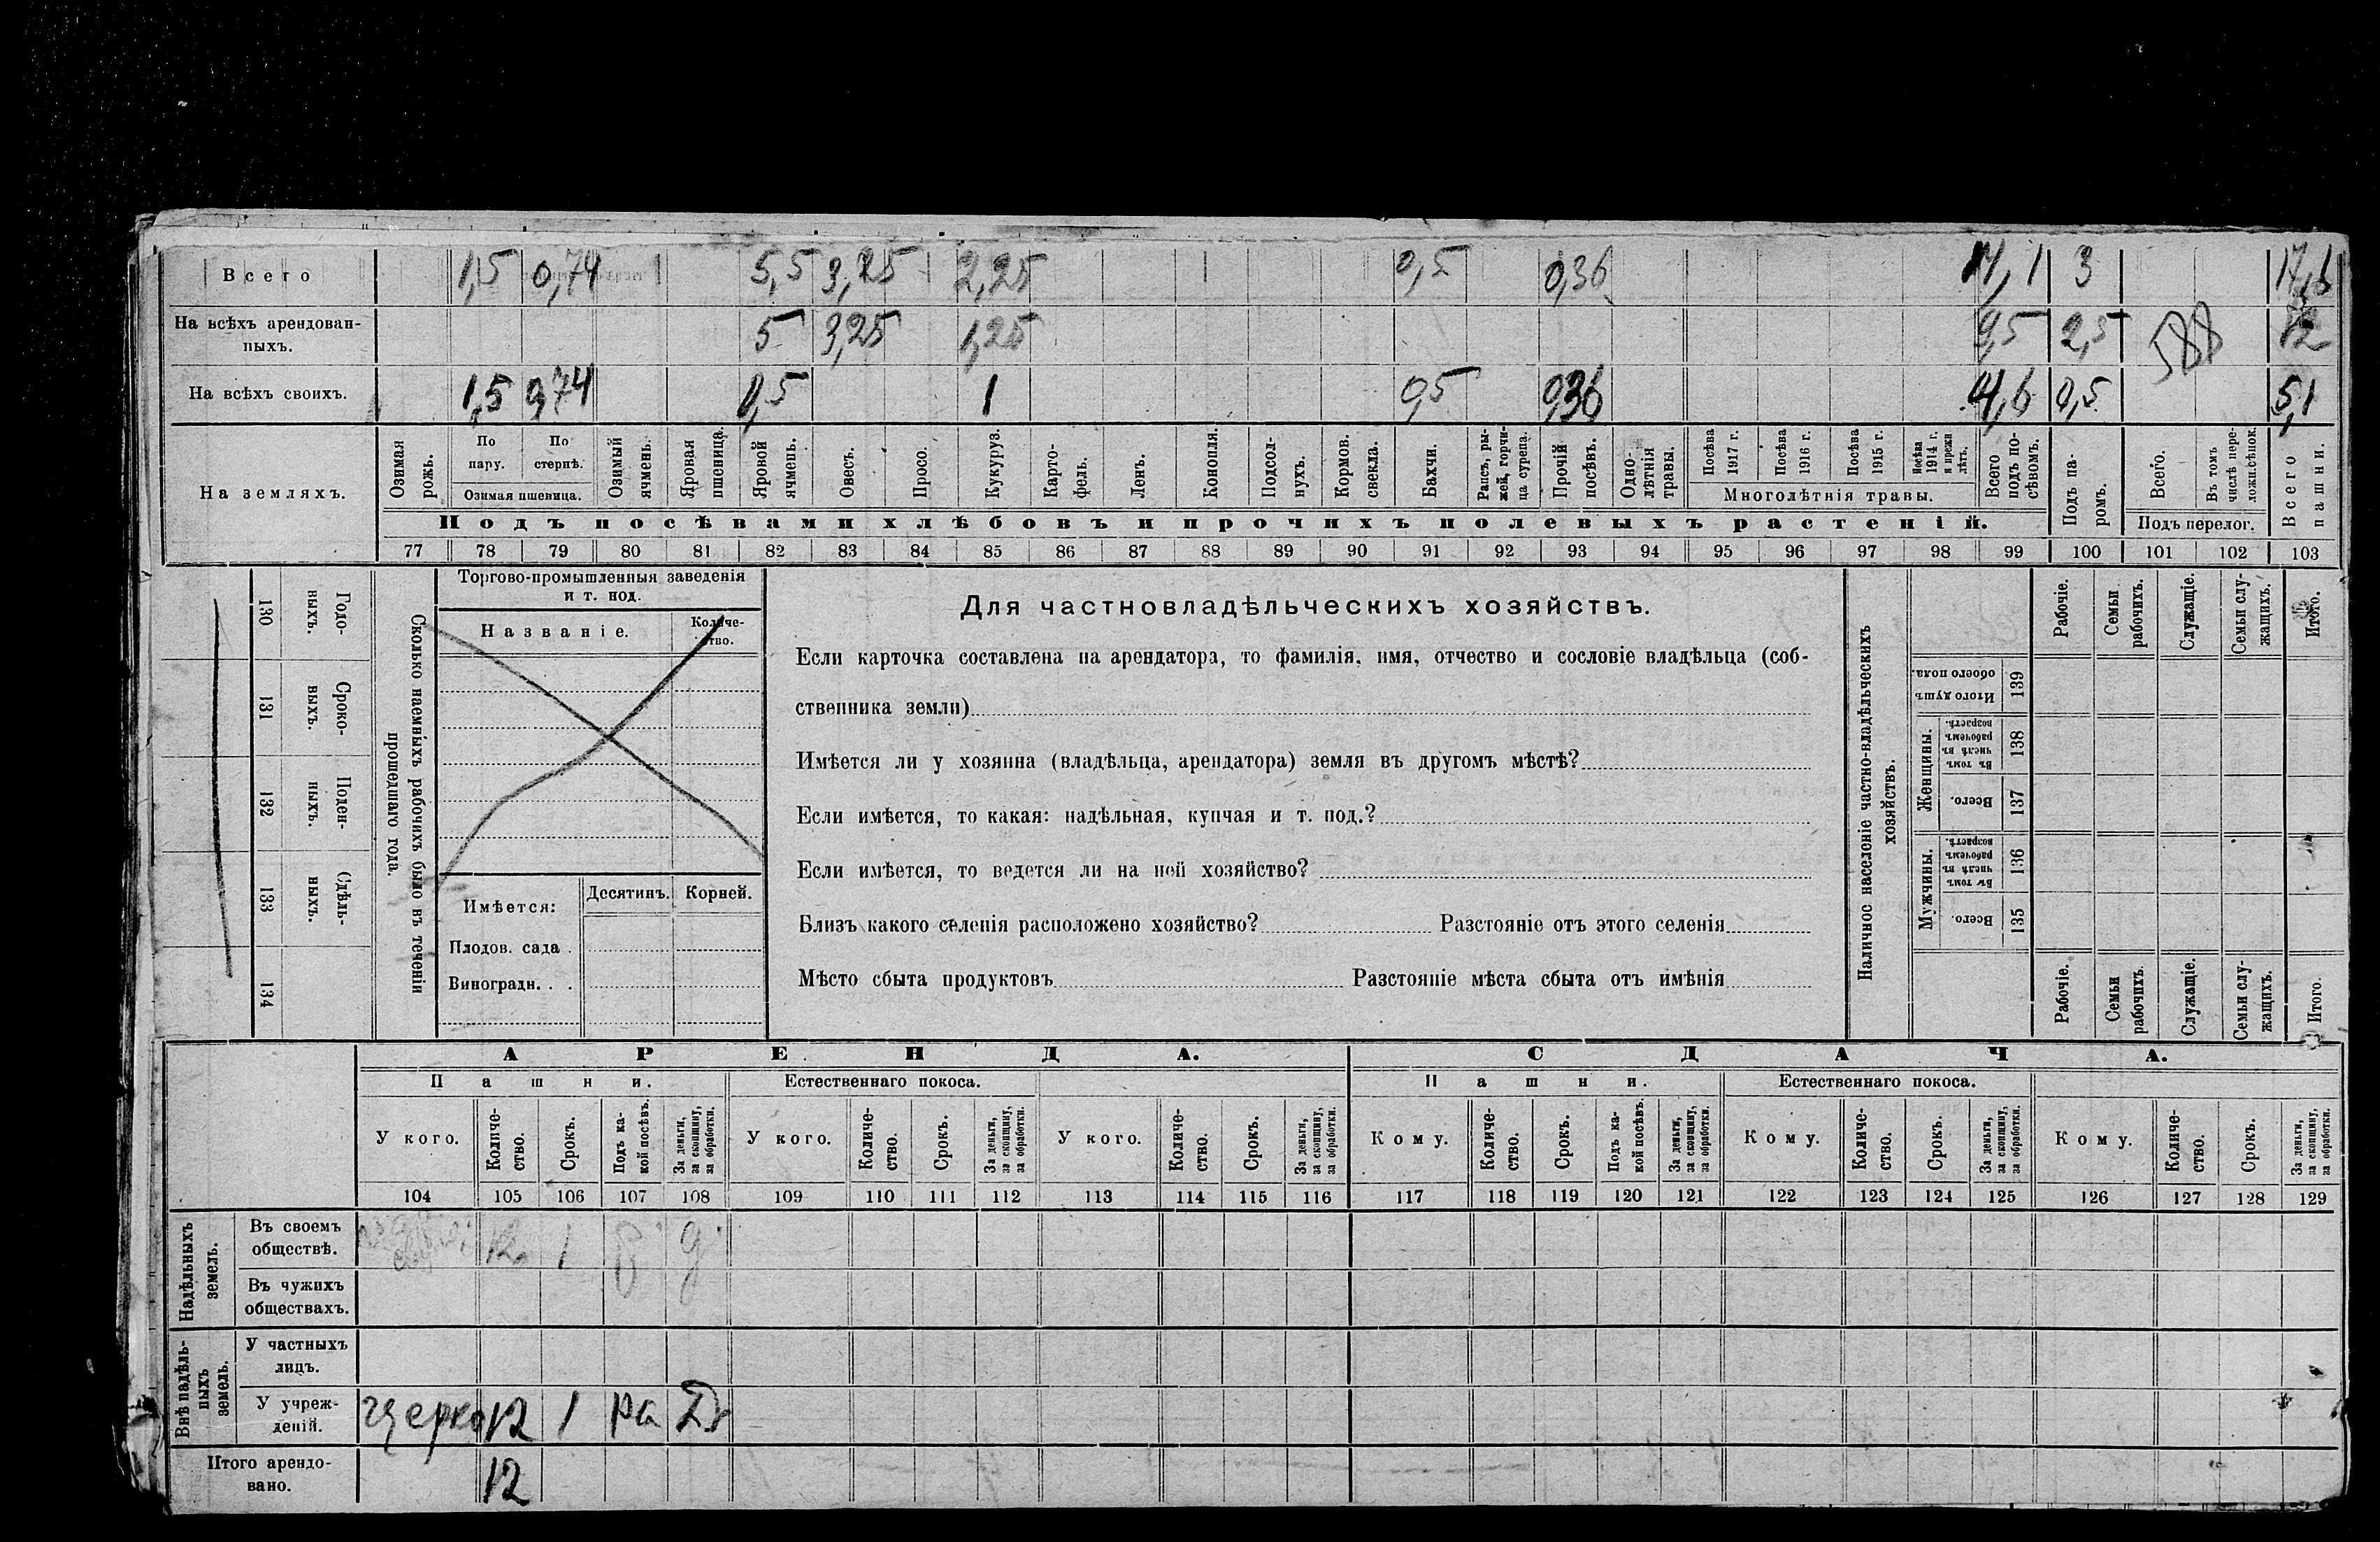 Всего 1,5 0,74 5,5 3,25 2,25 0,5 0,36 14,1 3 17,1
На всѣхъ арендован-
ныхъ. 5 3,25 1,25 9,5 2,5 12
588
На всѣхъ своихъ. 1,5 0,74 0,5 1 0,5 0,36 4,6 0,5 5,1
На земляхъ.
Озимая рожь.
По пару.
По стернѣ.
Озимая пшеница.
Озимый ячмень.
Яровая пшеница.
Яровой ячмень.
Овесъ.
Просо.
Кукуруз.
Карто-
фель.
Ленъ.
Конопля.
Подсол-
нухъ.
Кормов. свекла.
Бахчи.
Рапсъ, ры-
жей, горчи-
ца сурепа.
Прочій посѣвъ.
Одно-
лѣтнія травы.
Посѣва 1917 г.
Посѣва 1916 г.
Посѣва 1915 г.
Посѣва 1914 г. и прежн лѣтъ.
Многолѣтнія травы.
Всего подъ по-
сѣвомъ.
Подъ па-
ромъ.
Всего.
Въ томъ числѣ пере-
ложн.сѣнок.
Подъ перелог.
Всего пашни.
Подъ посѣвами хлѣбовъ и прочихъ полевыхъ растеній.
77 78 79 80 81 82 83 84 85 86 87 88 89 90 91 92 93 94 95 96 97 98 99 100 101 102 103
Сколько наемныхъ рабочихъ было въ теченіи
прошедшаго года.
Годо-
выхъ.
Сроко-
выхъ.
Поден-
ныхъ.
Сдѣль-
ныхъ.
130 131 132 133 134
Торгово-промышленныя заведенія
и т. под.
Названіе.
Количе-
ство.
Имѣется: Десятинъ. Корней.
Плодов. сада .
Виноградн. . .
Для частновладѣльческихъ хозяйствъ.
Если карточка составлена на арендатора, то фамилія, имя, отчество и сословіе владѣльца (соб-
ственника земли)
Имѣется ли у хозяина (владѣльца, арендатора) земля въ другомъ мѣстѣ?
Если имѣется, то какая: надѣльная, купчая и т. под.?
Если имѣется, то ведется ли на ней хозяйство?
Близъ какого селенія расположено хозяйство? Разстояніе отъ этого селенія
Мѣсто сбыта продуктовъ Разстояніе мѣста сбыта отъ имѣнія
Наличное населеніе частно-владѣльческихъ
хозяйствъ.
Рабочіе.
Семьи рабочихъ.
Служащіе.
Семьи слу-
жащихъ.
Итого.
Итого душъ обоего пола.
139
Женщины.
Въ томъ числѣ въ рабочемъ возрастѣ.
138
Всего.
137
Мужчины.
Въ томъ числѣ въ рабочемъ возрастѣ.
136
Всего.
135
Рабочіе.
Семьи рабочихъ.
Служащіе.
Семьи слу-
жащихъ.
Итого.
АРЕНДА. СДАЧА.
Пашни. Естественнаго покоса. Пашни. Естественнаго покоса.
У кого.
Количе-
ство.
Срокъ.
Подъ ка-
кой посѣвъ.
За деньги, за скопщину, за обработки.
У кого.
Количе-
ство.
Срокъ.
За деньги, за скопщину, за обработки.
У кого.
Количе-
ство.
Срокъ.
За деньги, за скопщину, за обработки.
Кому.
Количе-
ство.
Срокъ.
Подъ ка-
кой посѣвъ.
За деньги, за скопщину, за обработки.
Кому.
Количе-
ство.
Срокъ.
За деньги, за скопщину, за обработки.
Кому.
Количе-
ство.
Срокъ.
За деньги, за скопщину, за обработки.
104 105 106 107 108 109 110 111 112 113 114 115 116 117 118 119 120 121 122 123 124 125 126 127 128 129
Надѣльныхъ земель.
Въ своемъ
обществѣ. 12 1
Въ чужихъ
обществахъ.
Внѣ надѣль-
ныхъ земель.
У частныхъ
лицъ.
У учреж-
деній. 12 1 ра
Итого арендо-
вано. 12